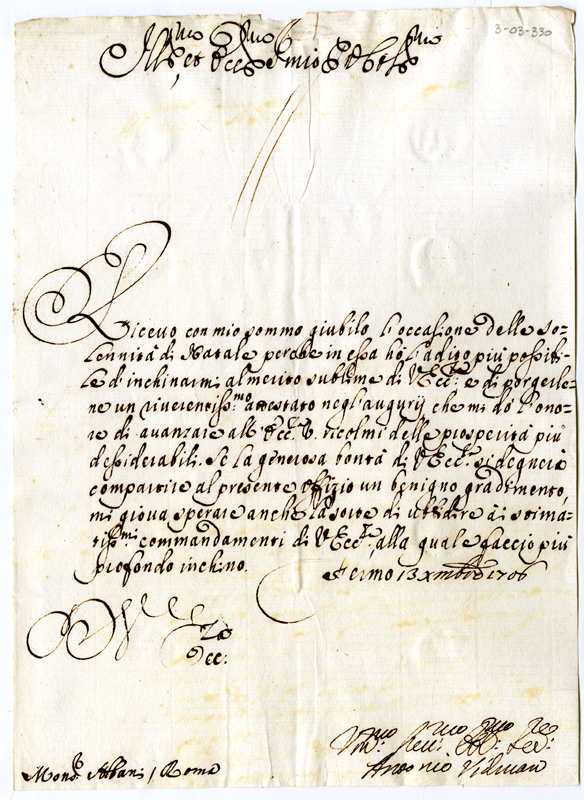 3-03-330
Ill.mo et Ecc.mo Sig.r mio P.ron Col.mo
Ricevo con mio sommo giubilo l'occasione delle so-
lennità di Natale perche in essa hò l'adito più possibi-
le d'inchinarmi al merito sublime di V Ecc.za e di porgerle-
ne un riverentiss.mo attestato negl'augurij che mi dò l'ono-
re di avanzare all' Ecc.za V. ricolmi delle prosperità più
dessiderabili. Se la generosa bontà di V Ecc.za si degnerà
compartire al presente offizio un benigno gradimento,
mi giova sperare anche la sorte di ubbidire à i stima-
tiss.mi commandamenti di V Ecc.za alla quale faccio più
profondo inchino.
Fermo 13 Xmbre 1706
V.
Ecc:
Mons.r Albani / Roma
Um.mo Dev.mo Obl.mo Ser:
Antonio Vidman